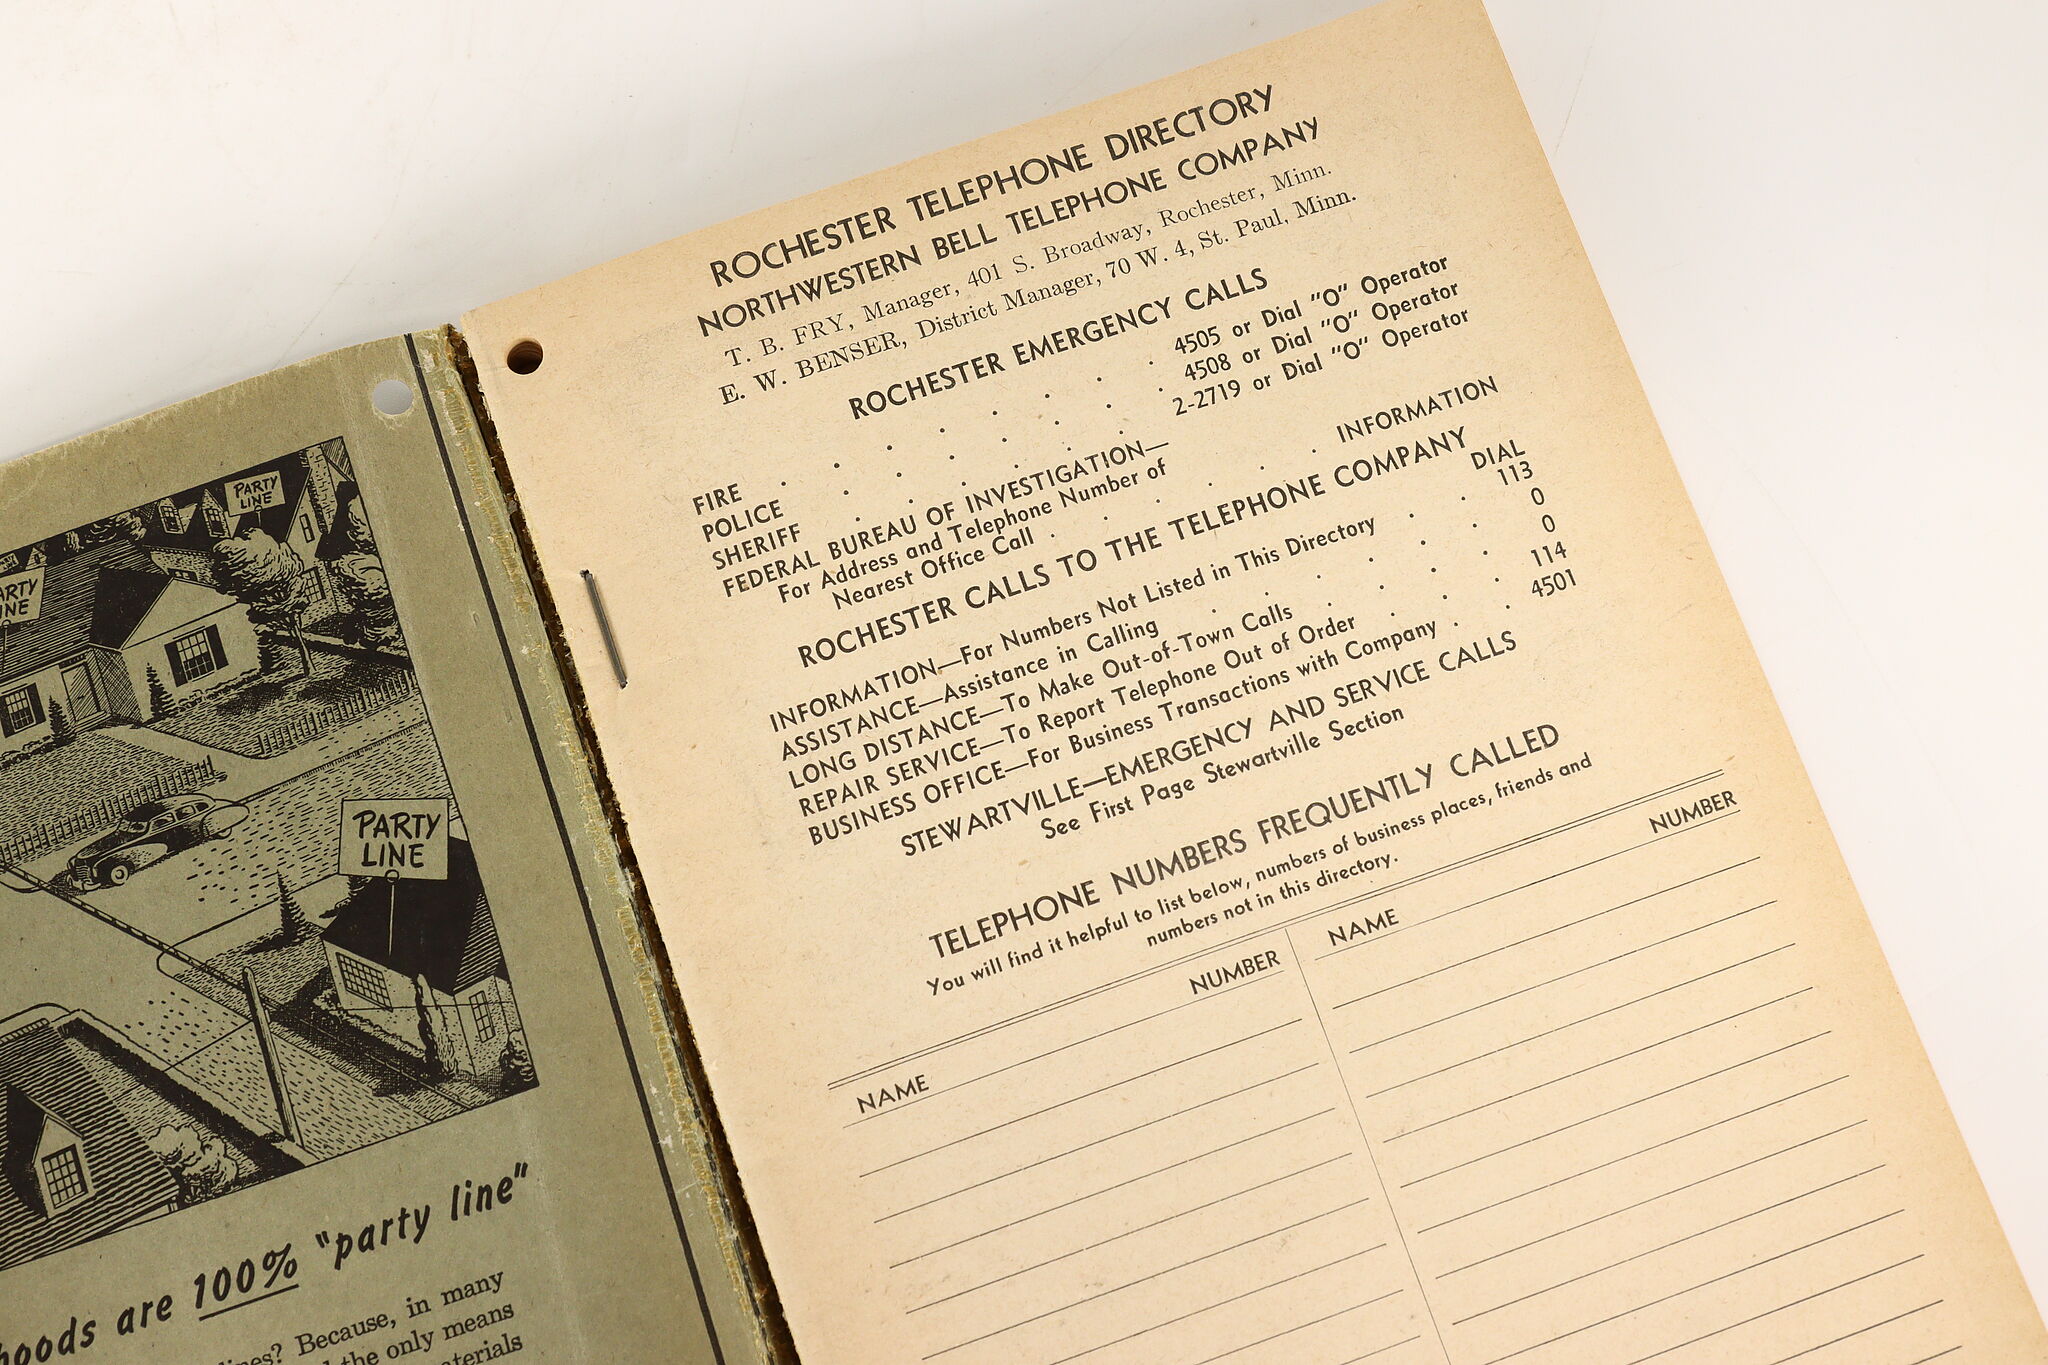 PARTY
LINE
ARTY
INE
PARTY
LINE
are 100% "party line"
Because, in many
the only means
ROCHESTER TELEPHONE DIRECTORY
NORTHWESTERN BELL TELEPHONE COMPANY
T. B. FRY, Manager, 401 S. Broadway, Rochester, Minn.
E. W. BENSER, District Manager, 70 W. 4, St. Paul, Minn.
ROCHESTER EMERGENCY CALLS
FIRE . . . . . . . . 4505 or Dial "O" Operator
POLICE . . . . . . . 4508 or Dial "O" Operator
SHERIFF . . . . . . 2-2719 or Dial "O" Operator
FEDERAL BUREAU OF INVESTIGATION—
For Address and Telephone Number of
Nearest Office Call . . . . . . INFORMATION
ROCHESTER CALLS TO THE TELEPHONE COMPANY
DIAL
INFORMATION—For Numbers Not Listed in This Directory . . 113
ASSISTANCE—Assistance in Calling . . . . . . 0
LONG DISTANCE—To Make Out-of-Town Calls . . . . 0
REPAIR SERVICE—To Report Telephone Out of Order . . . 114
BUSINESS OFFICE—For Business Transactions with Company . . 4501
STEWARTVILLE—EMERGENCY AND SERVICE CALLS
See First Page Stewartville Section
TELEPHONE NUMBERS FREQUENTLY CALLED
You will find it helpful to list below, numbers of business places, friends and
numbers not in this directory.
NAME NUMBER NAME NUMBER